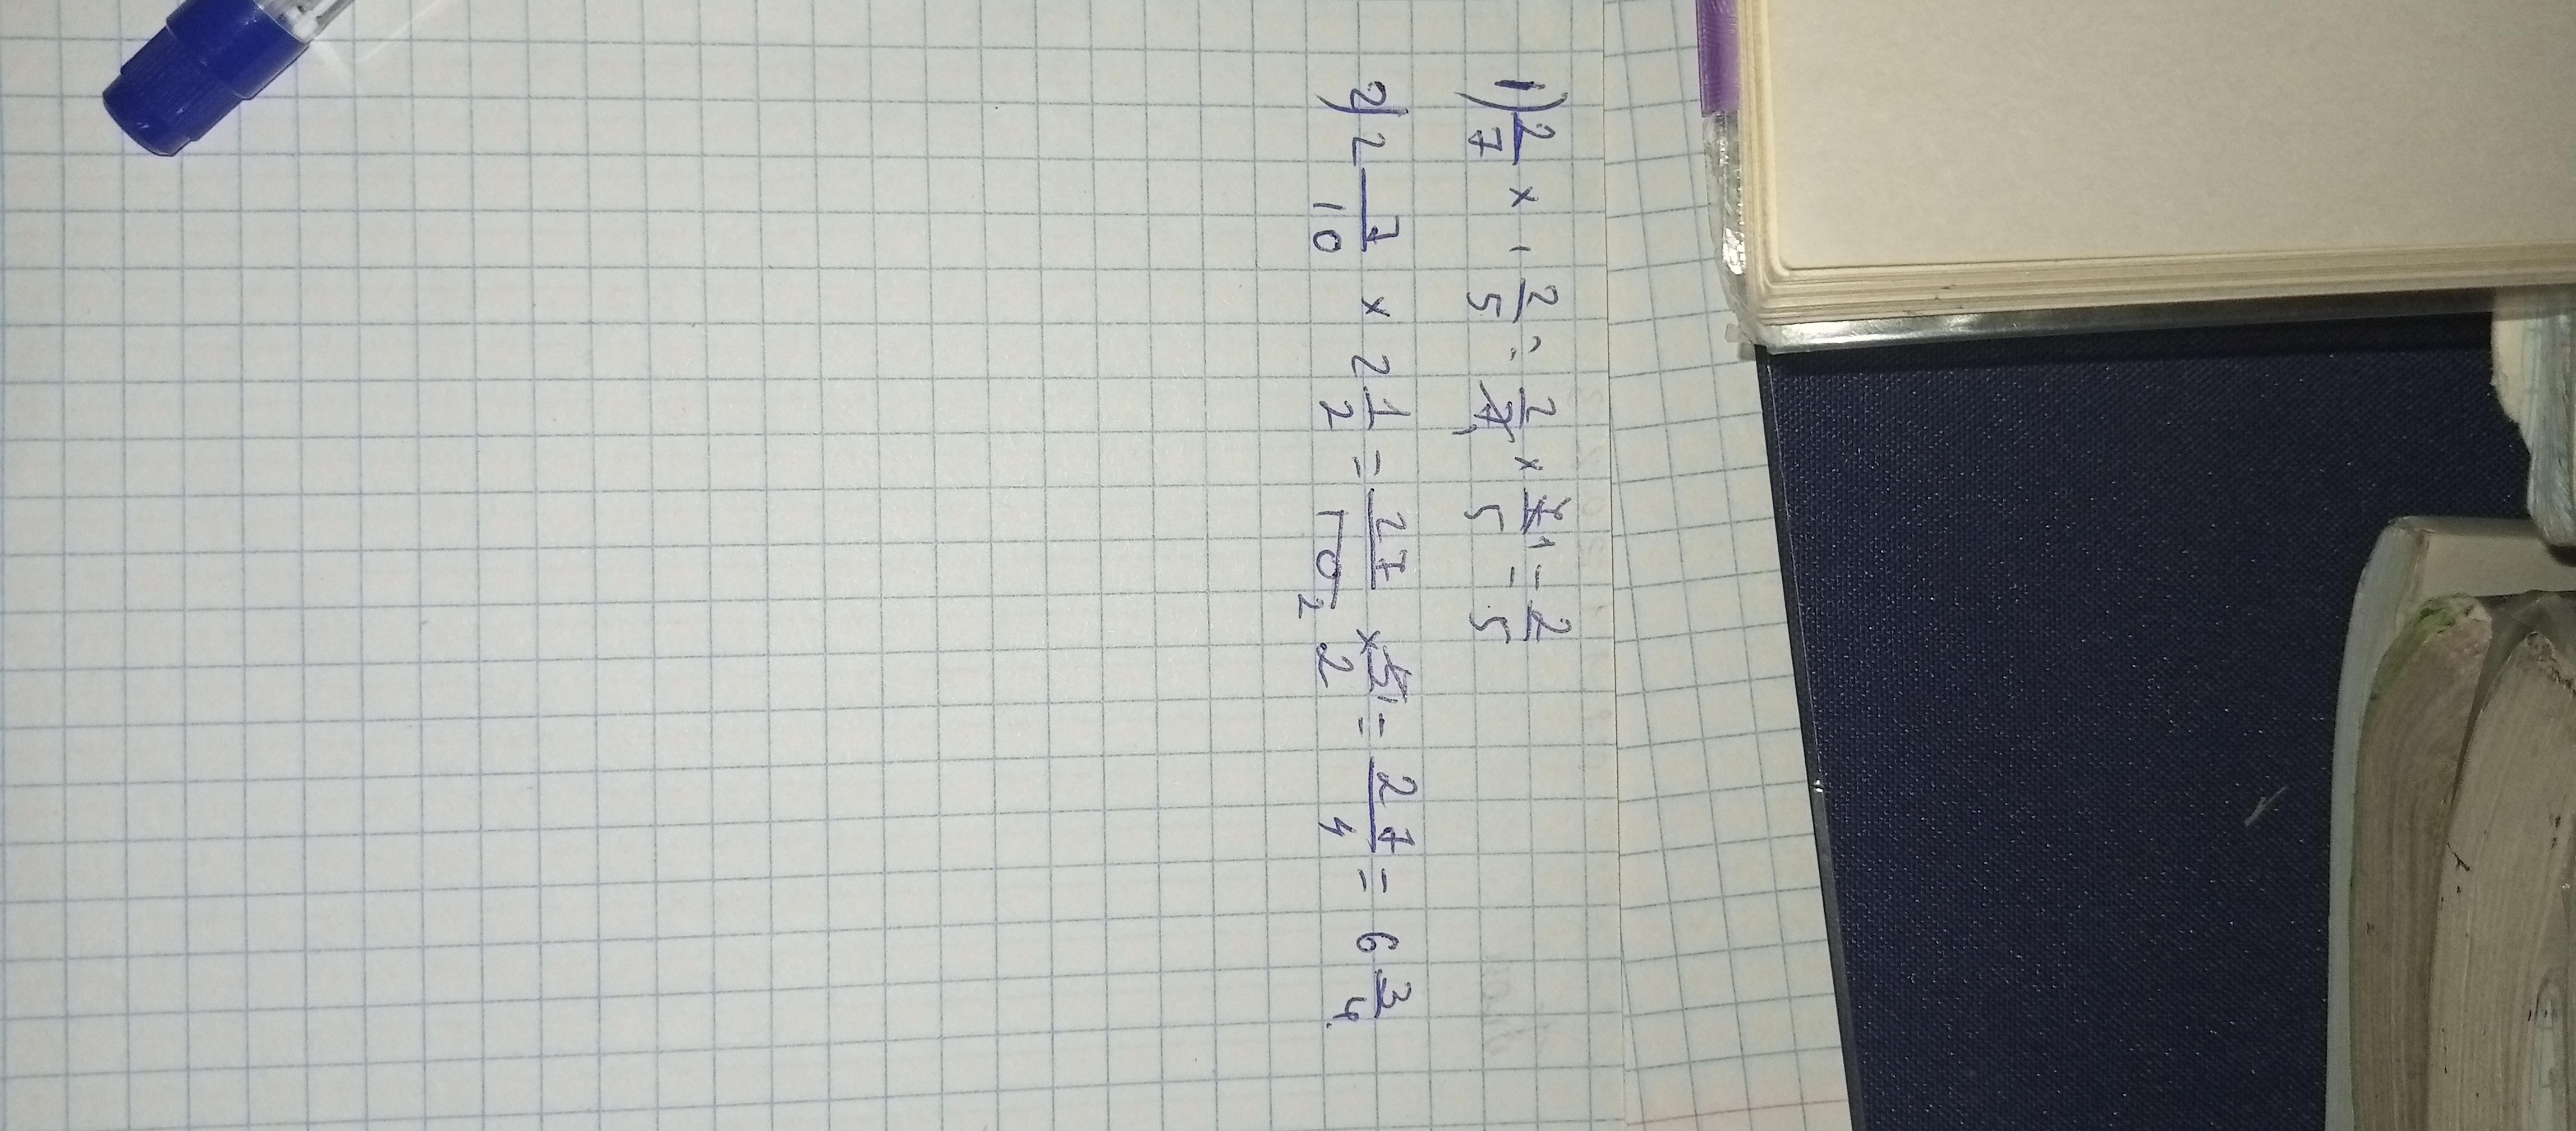 1) 2/7 × 1 2/5 = 2/7 1 × 7/5 1 = 2/5
2) 2 7/10 × 2 1/2 = 27/10 2 × 5/2 1 = 27/4 = 6 3/4